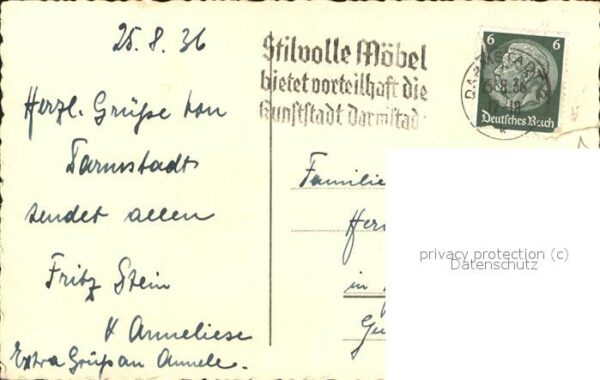 25.8.36
Herzl. Grüße von
Darmstadt
sendet allen
Fritz Stein
u Anneliese
Extra Gruß an Annele.
Stilvolle Möbel
bietet vorteilhaft die
Kunststadt Darmstadt
6 6
Deutsches Reich
DARMSTADT
Familie
in
privacy protection (c)
Datenschutz